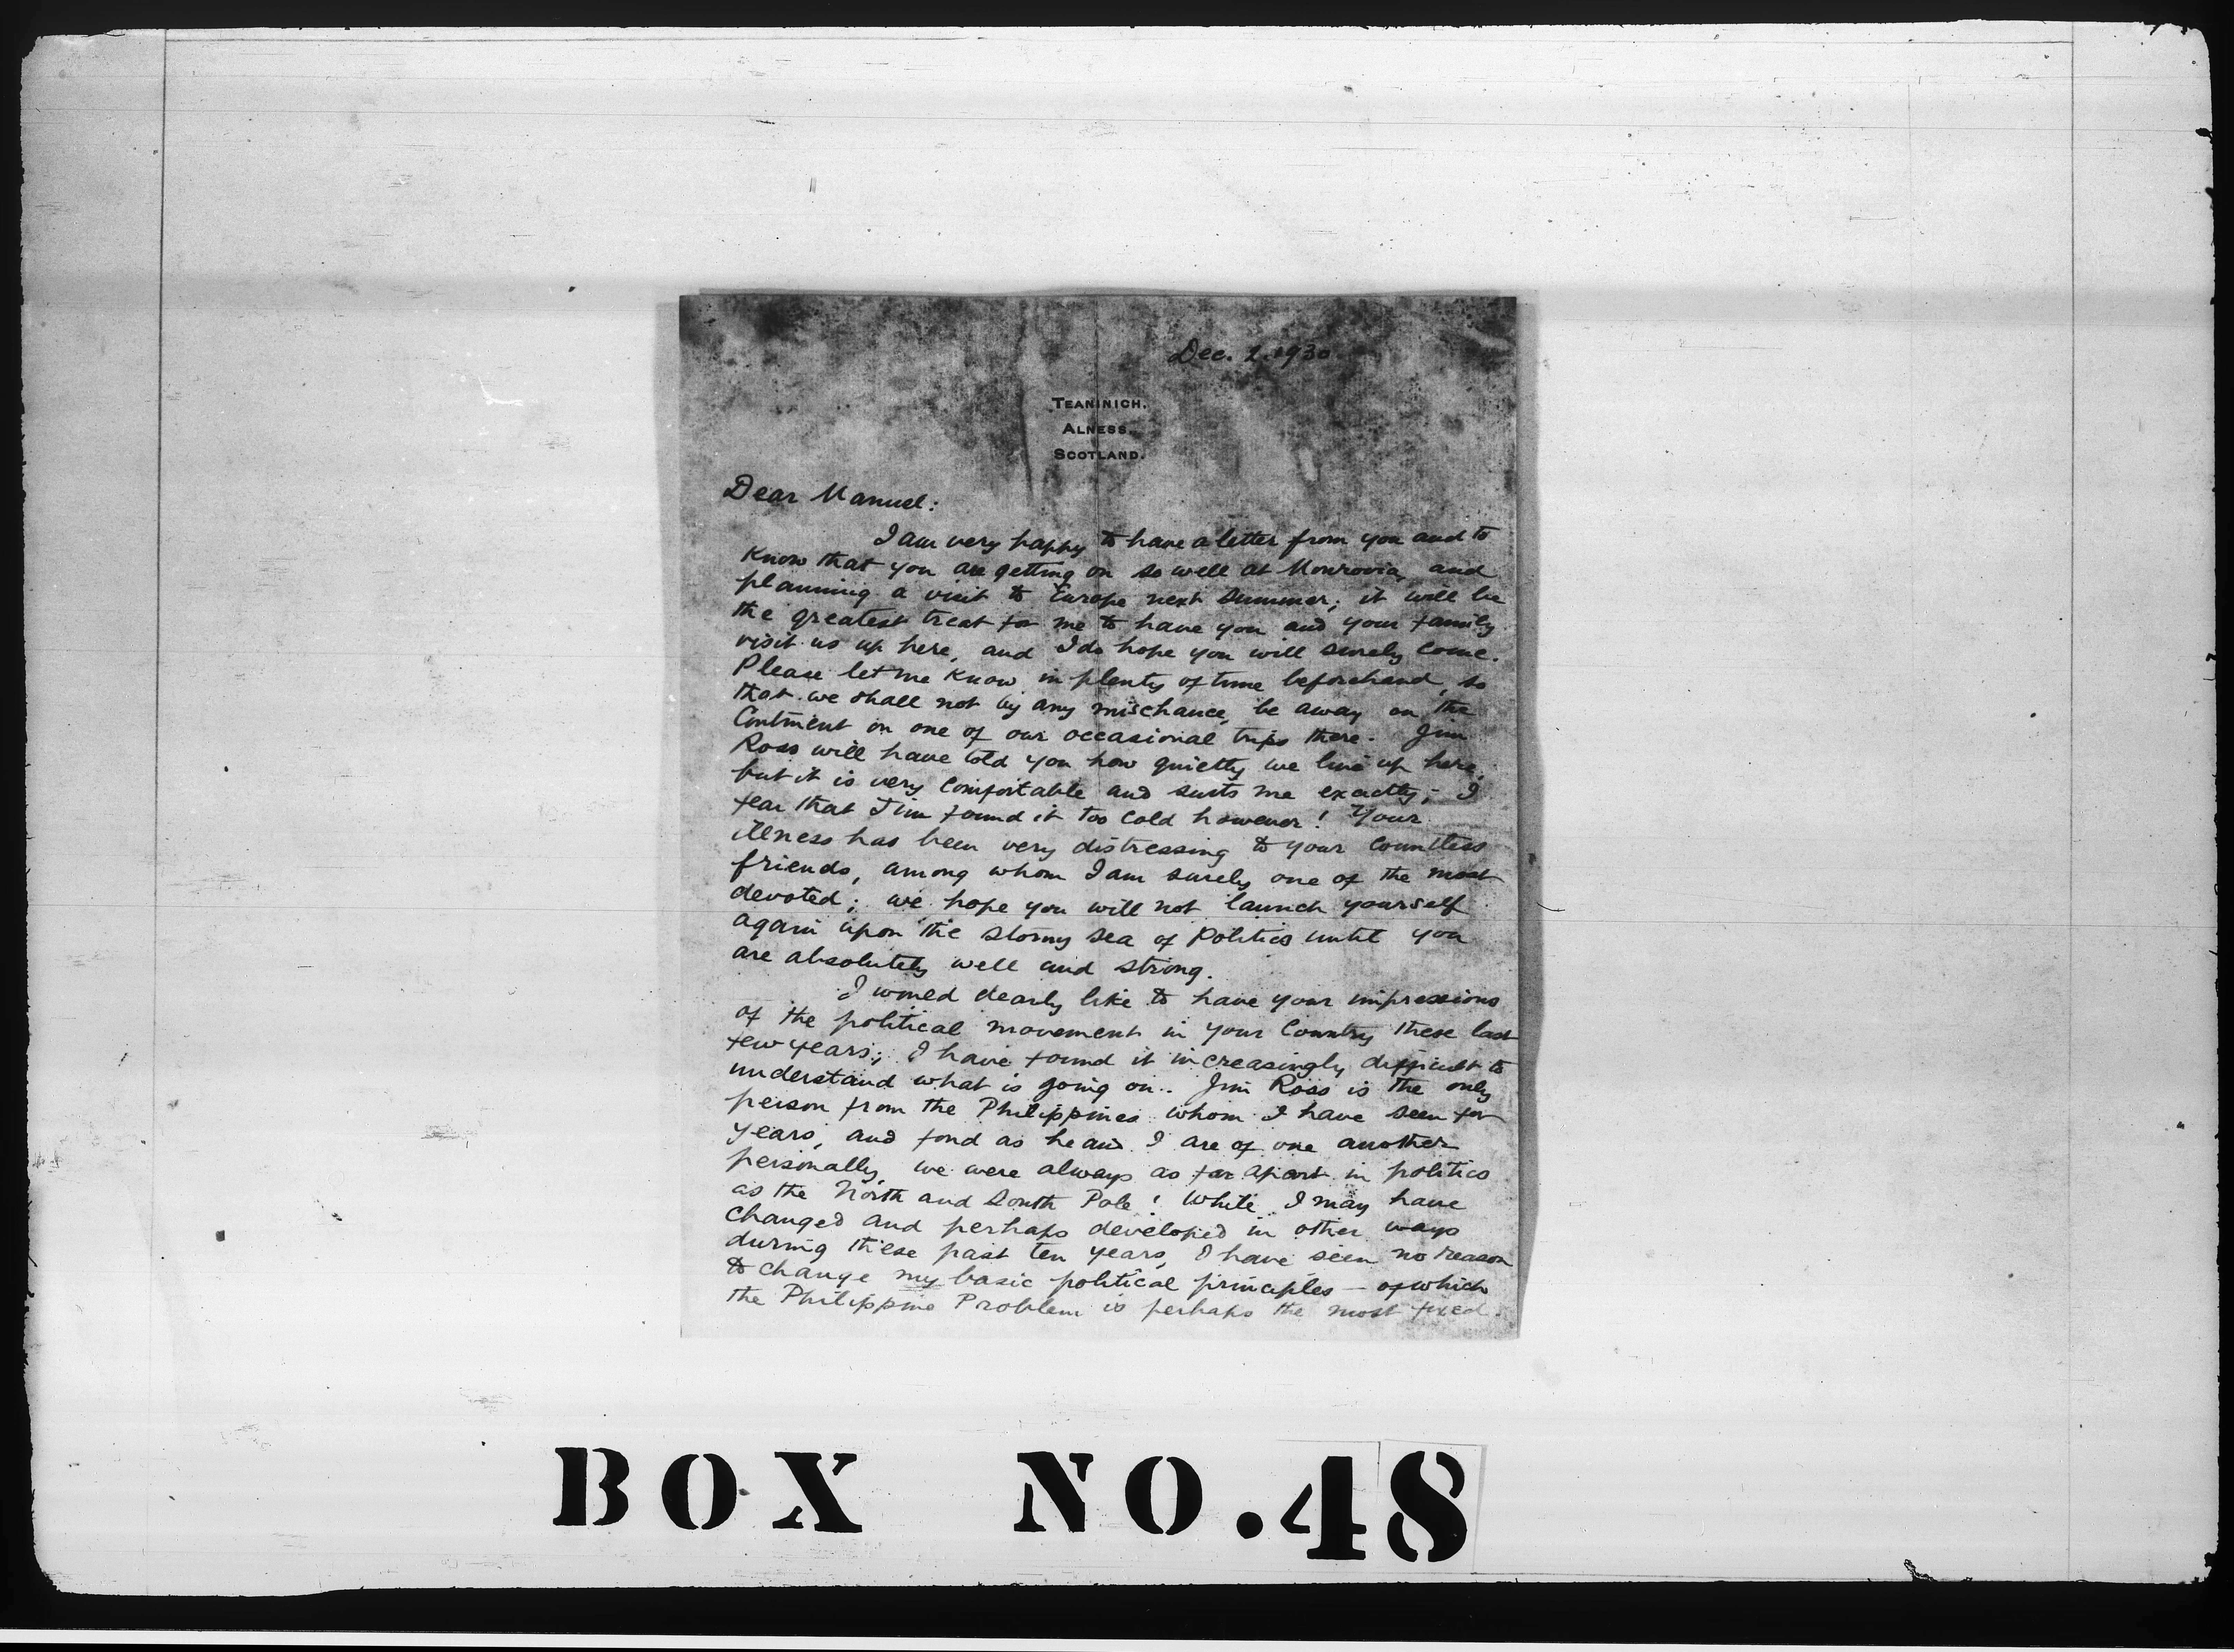 Dec. 2. 1930
TEANINICH.
ALNESS.
SCOTLAND.
Dear Manuel:
I am very happy to have a letter from you and to
know that you are getting on so well at Monrovia, and
planning a visit to Europe next summer; it will be
the greatest treat for me to have you and your family
visit us up here, and I do hope you will surely come.
Please let me know in plenty of time beforehand, so
that we shall not by any mischance, be away on the
Continent on one of our occasional trips there. Jim
Ross will have told you how quietly we live up here,
but it is very comfortable and suits me exactly; I
fear that Jim found it too cold however! Your
illness has been very distressing to your countless
friends, among whom I am surely one of the most
devoted; we hope you will not launch yourself
again upon the stormy sea of Politics until you
are absolutely well and strong.
I would dearly like to have your impressions
of the political movement in your Country these last
few years; I have found it increasingly difficult to
understand what is going on. Jim Ross is the only
person from the Philippines whom I have seen for
years, and fond as he and I are of one another
personally, we were always as far apart in politics
as the North and South Pole! While I may have
changed and perhaps developed in other ways
during these past ten years, I have seen no reason
to change my basic political principles — of which
the Philippine Problem is perhaps the most fixed.
BOX NO. 48